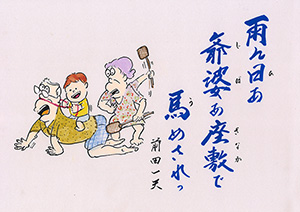 雨ん日あ
爺婆あ座敷で
馬めされっ
前田一天